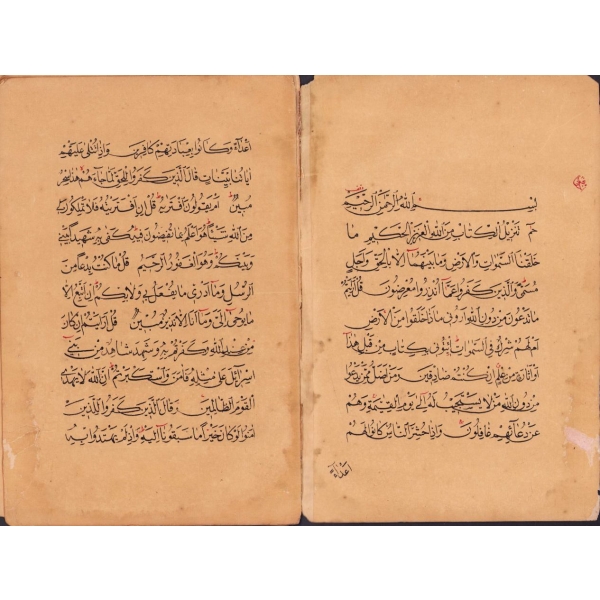 بسم الله الرحمن الرحيم
حم تنزيل الكتاب من الله العزيز الحكيم ما
خلقنا السموات والارض وما بينهما الا بالحق واجل
مسمى والذين كفروا عما انذروا معرضون قل ارايتم
ما تدعون من دون الله اروني ماذا خلقوا من الارض
ام لهم شرك في السموات ايتوني بكتاب من قبل هذا
او اثارة من علم ان كنتم صادقين ومن اضل ممن يدعوا
من دون الله من لا يستجيب له الى يوم القيمة وهم
عن دعائهم غافلون واذا حشر الناس كانوا لهم
اعداء
اعداء وكانوا بعبادتهم كافرين واذا تتلى عليهم
اياتنا بينات قال الذين كفروا للحق لما جاءهم هذا سحر
مبين ام يقولون افتريه قل ان افتريته فلا تملكون لي
من الله شيئا هو اعلم بما تفيضون فيه كفى به شهيدا بيني
وبينكم وهو الغفور الرحيم قل ما كنت بدعا من
الرسل وما ادري ما يفعل بي ولا بكم ان اتبع الا
ما يوحى الي وما انا الا نذير مبين قل ارايتم ان كان
من عند الله وكفرتم به وشهد شاهد من بني
اسرائل على مثله فامن واستكبرتم ان الله لا يهدي
القوم الظالمين وقال الذين كفروا للذين
امنوا لو كان خيرا ما سبقونا اليه واذ لم يهتدوا به